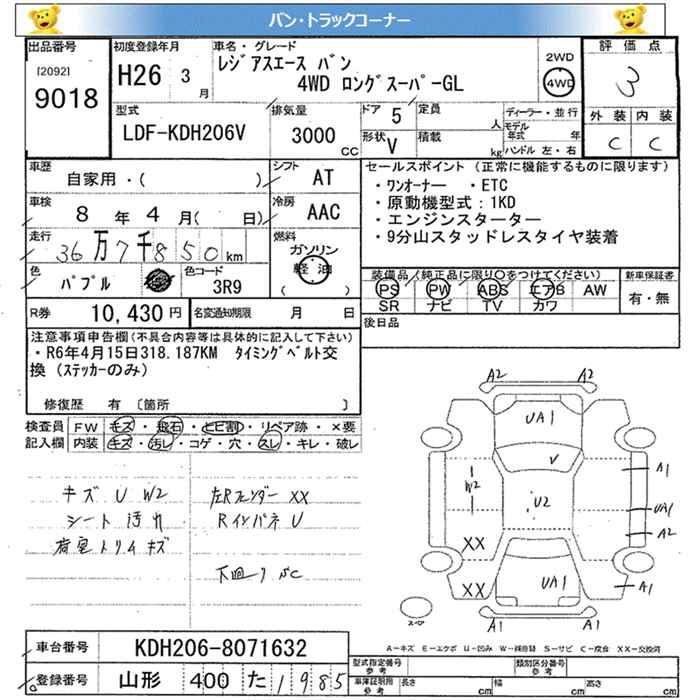 バン・トラックコーナー
出品番号 初度登録年月 車名・グレード 評価点
[2092] 9018
H26 3月
レジアスエース バン
4WD ロングスーパーGL
2WD
4WD
3
型式 排気量 ドア 5 定員 人 ディーラー・並行 外装 内装
LDF-KDH206V 3000CC 形状 V 積載 kg モデル年式 年 C C
ハンドル 左・右
車歴 自家用・( ) シフト AT
セールスポイント (正常に機能するものに限ります)
・ワンオーナー ・ETC
・原動機型式:1KD
・エンジンスターター
・9分山スタッドレスタイヤ装着
車検 8年4月( 日) 冷房 AAC
走行 36万7千850km 燃料 ガソリン 軽油
色 パプル 色コード 3R9
装備品(純正品に限り○をつけてください) 新車保証書
PS PW ABS エアB AW 有・無
SR ナビ TV カワ
R券 10,430円 名変通知期限 月 日
後日品
注意事項申告欄(不具合内容等は具体的に記入して下さい)
・R6年4月15日318.187KM タイミングベルト交
換(ステッカーのみ)
修復歴 有 〔箇所 〕
検査員 FW キズ・飛石・ヒビ割・リペア跡・×要
記入欄 内装 キズ・汚レ・コゲ・穴・スレ・キレ・破レ
キズ U W2 左Rフェンダー XX
シート 汚れ Rインパネ U
荷室トリム キズ
下廻り SC
A2 A2
UA1
V
A1
W2
U2
UA1
A2
XX
XX
UA1
A1
A1 A1
スペア
A-キズ E-エクボ U-凹み W-補修跡 S-サビ C-腐食 XX-交換済
車台番号 KDH206-8071632
登録番号 山形 400 た 1985
型式指定番号 参考 類別区分番号 参考
車庫証明用 参考 長さ cm 幅 cm 高さ cm